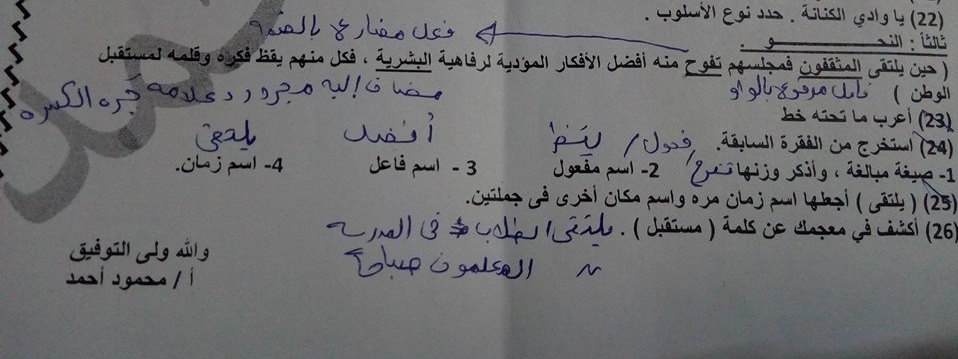 (22) يا وادي الكنانة . حدد نوع الأسلوب .
فعل مضارع بالضمة
ثالثاً : النحـــــــــو .
( حين يلتقى المثقفون فمجلسهم تفوح منه أفضل الأفكار المؤدية لرفاهية البشرية ، فكل منهم يقظ فكره وقلمه لمستقبل
الوطن ) فاعل مرفوع بالواو مضاف إليه مجرور وعلامة جره الكسرة
(23) أعرب ما تحته خط
(24) أستخرج من الفقرة السابقة. فعول / يقظ أفضل يلتقى
1- صيغة مبالغة ، وأذكر وزنها تفوح/ 2- اسم مفعول 3 - اسم فاعل 4- اسم زمان.
(25) ( يلتقى ) أجعلها اسم زمان مره واسم مكان أخرى فى جملتين.
(26) أكشف في معجمك عن كلمة ( مستقبل ) . يلتقى الطلاب فى المدرسه
المعلمون صباحاً
والله ولى التوفيق
أ / محمود أحمد